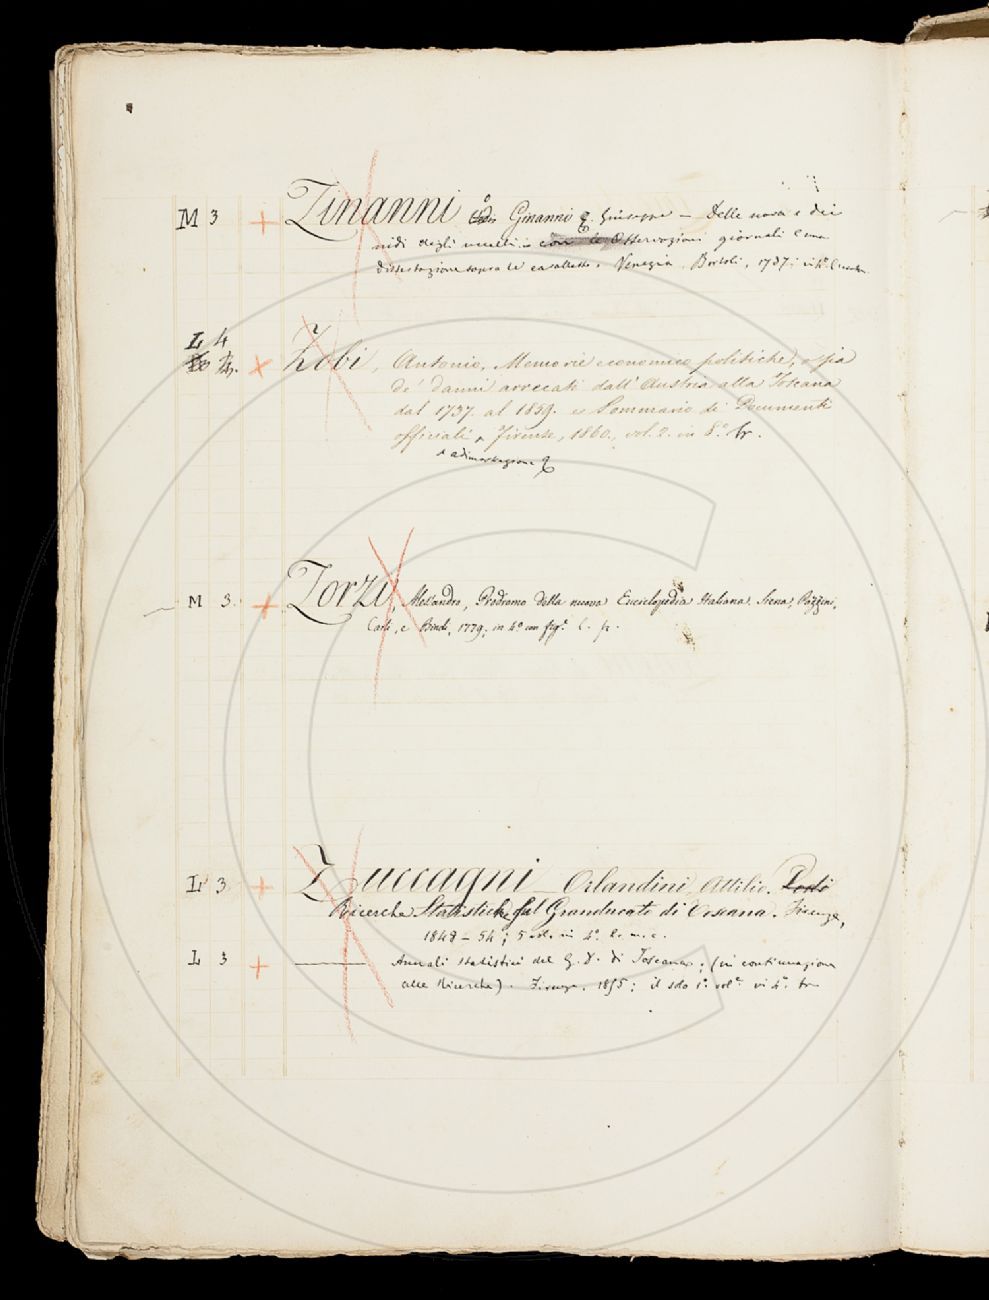 M 3 + Zinanni o Ginanni C. Giuseppe — Delle uova e dei
nidi degli uccelli con le Osservazioni giornali e una
dissertazione sopra le cavallette. Venezia, Bortoli, 1737; in 4°.
L 4
× Zobi, Antonio, Memorie economico politiche, o sia
de' danni arrecati dall' Austria alla Toscana
dal 1737. al 1859. e Sommario di Documenti
officiali, Firenze, 1860., vol. 2. in 8.° br.
M 3. + Zorzi, Alessandro, Prodromo della nuova Enciclopedia Italiana. Siena, Pazzini,
Carli, e Bindi, 1779; in 4° con fig.e l. p.
L 3 + Zuccagni — Orlandini Attilio.
Ricerche Statistiche sul Granducato di Toscana. Firenze,
1848 — 54; 5 vol. in 4°.
L 3 + ——— Annali statistici del G. D. di Toscana; (in continuazione
alle Ricerche). Firenze. 1855; il solo 1°. vol.e in 4°. br